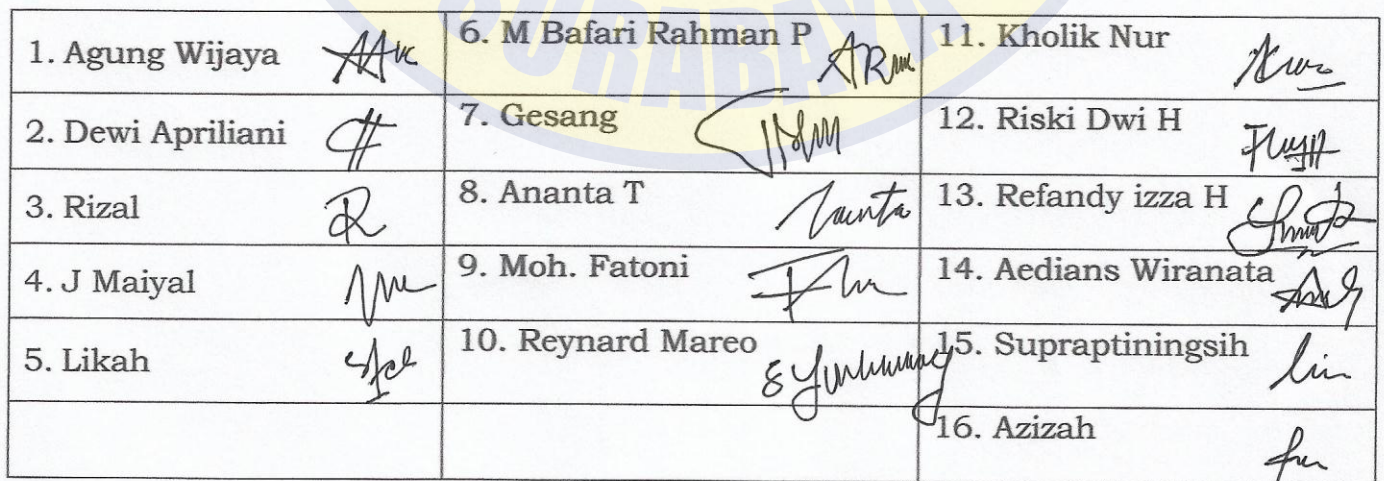 SURABAYA
1. Agung Wijaya
6. M Bafari Rahman P
11. Kholik Nur
2. Dewi Apriliani
7. Gesang
12. Riski Dwi H
3. Rizal
8. Ananta T
13. Refandy izza H
4. J Maiyal
9. Moh. Fatoni
14. Aedians Wiranata
5. Likah
10. Reynard Mareo
15. Supraptiningsih
16. Azizah